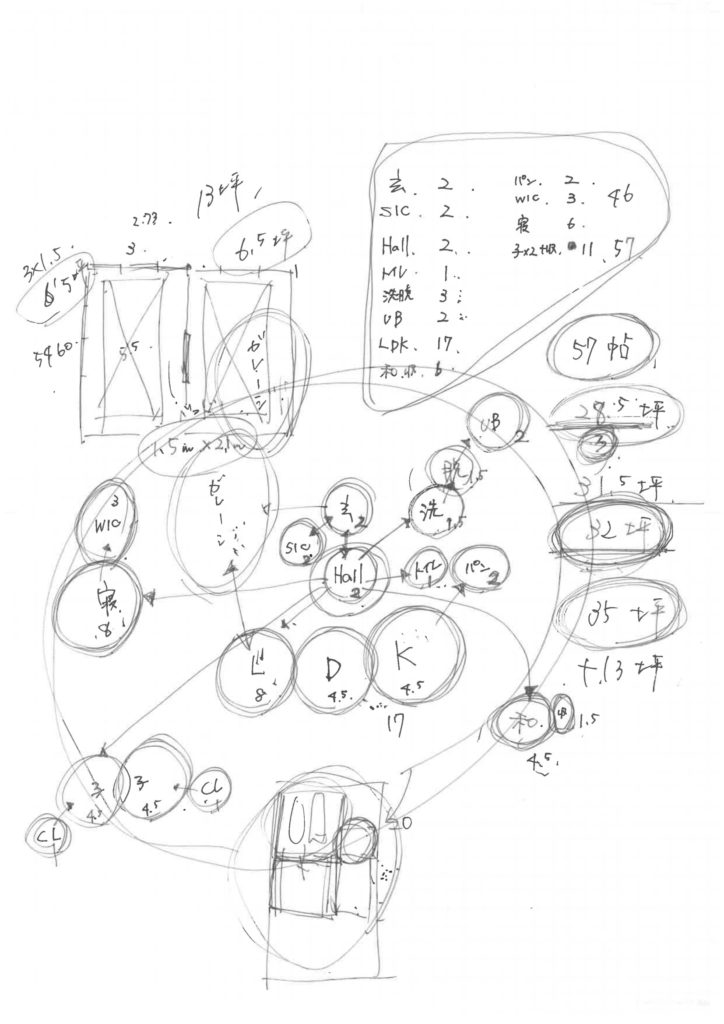 13坪
2.73
3
6.5坪
3×1.5
6.5坪
5460
5.5
ガレージ
1.5m×2.1m
玄 2
SIC. 2
Hall 2
トイレ 1
洗脱 3
UB 2
LDK. 17
和.収 6
パン. 2
WIC 3. 46
寝 6
子×2+収. 11. 57
57帖
28.5坪
3
31.5坪
32坪
35坪
+13坪
UB 2
脱 1.5
洗 1.5
玄 2
SIC 2
Hall 2
トイレ 1
パン 2
ガレージ
3 WIC
寝 8
L 8
D 4.5
K 4.5
17
和. 4.5
収 1.5
子 4.5
子 4.5
CL 1
CL 1
30